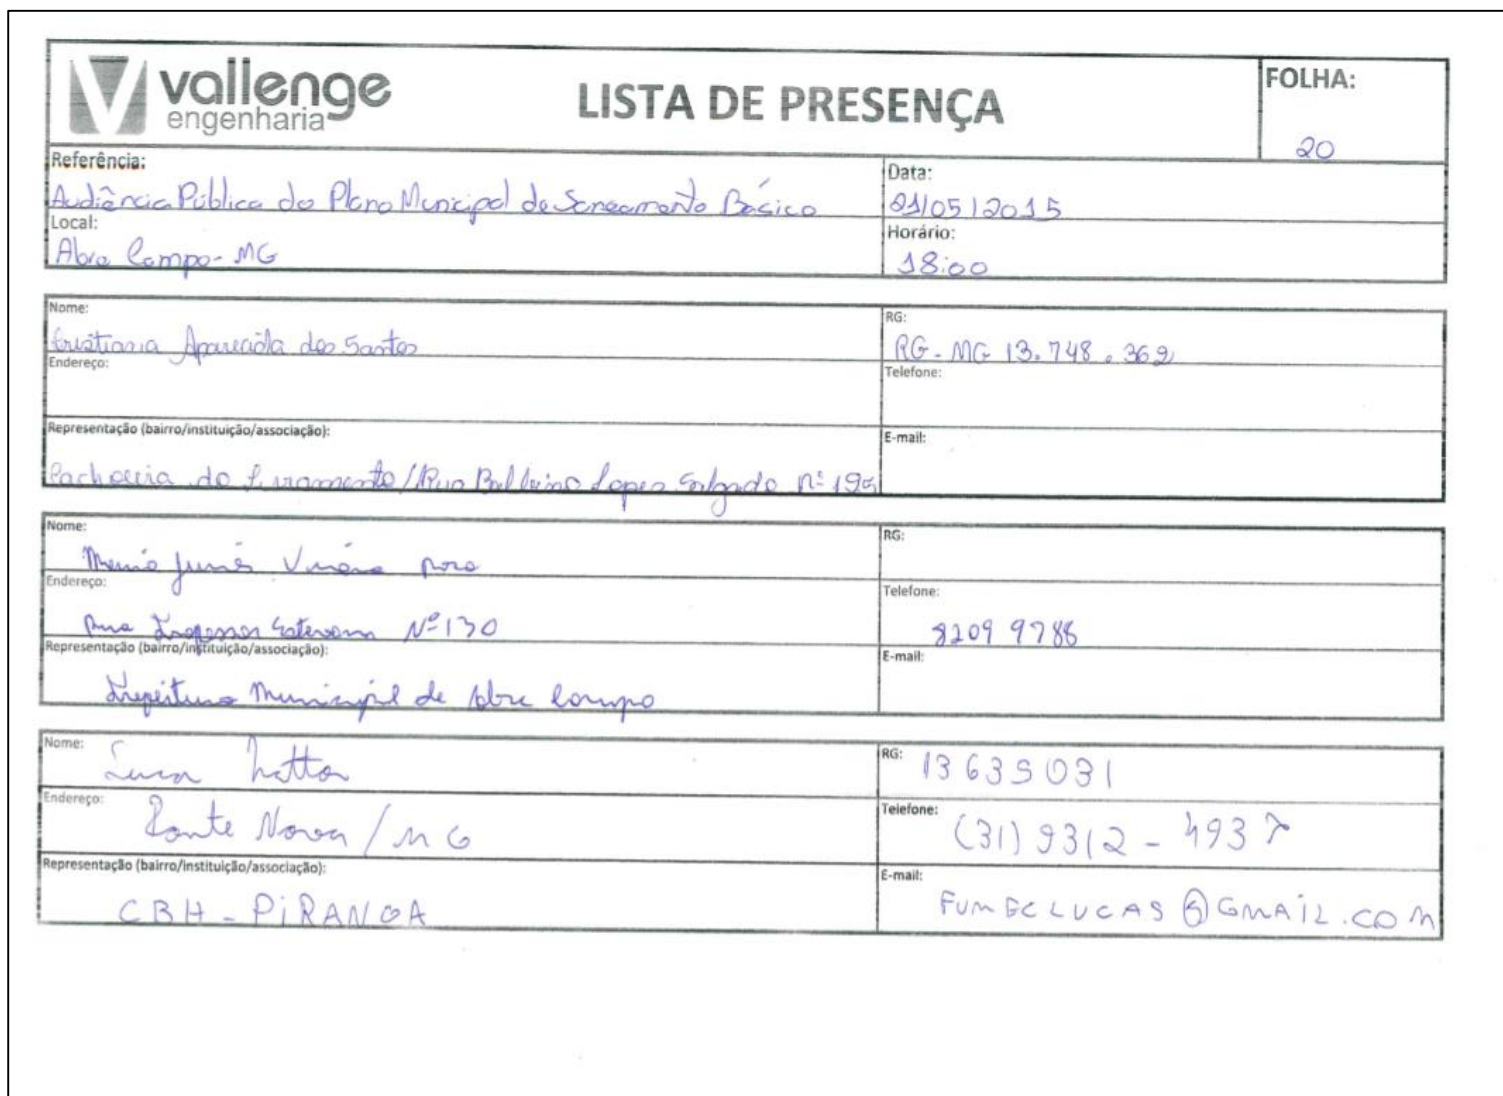 vallenge
engenharia
LISTA DE PRESENÇA
FOLHA:
20
Referência:
Audiência Pública do Plano Municipal de Saneamento Básico
Data:
21/05/2015
Local:
Abre Campo-MG
Horário:
18:00
Nome:
Cristiana Aparecida dos Santos
RG:
RG-MG 13.748.362
Endereço:
Telefone:
Representação (bairro/instituição/associação):
Cachoeira do Livramento/Rua Lopes Salgado nº 195
E-mail:
Nome:
RG:
Endereço:
Rua Professor Estevam Nº 130
Telefone:
8209 9788
Representação (bairro/instituição/associação):
Prefeitura Municipal de Abre Campo
E-mail:
Nome:
RG:
13635031
Endereço:
Ponte Nova/MG
Telefone:
(31) 9312-4937
Representação (bairro/instituição/associação):
CBH-PiRANGA
E-mail:
FUMECLUCAS@GMAiL.COM